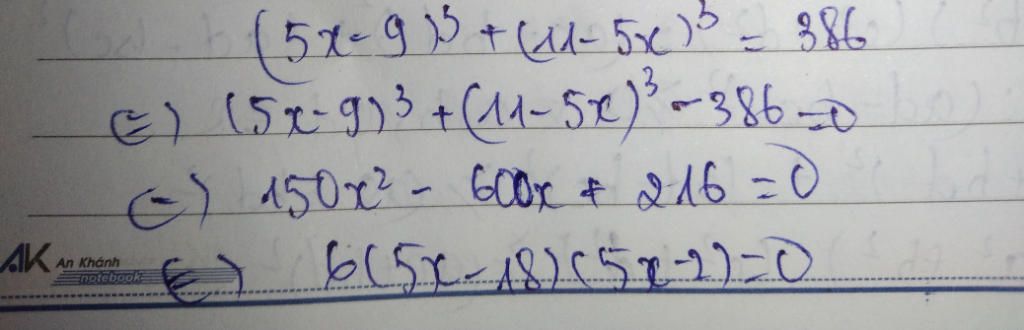 (5x-9)³ + (11-5x)³ = 386
⇔) (5x-9)³ + (11-5x)³ - 386 = 0
⇔) 150x² - 600x + 216 = 0
AK An Khánh
notebook
⇔) 6(5x-18)(5x-2) = 0